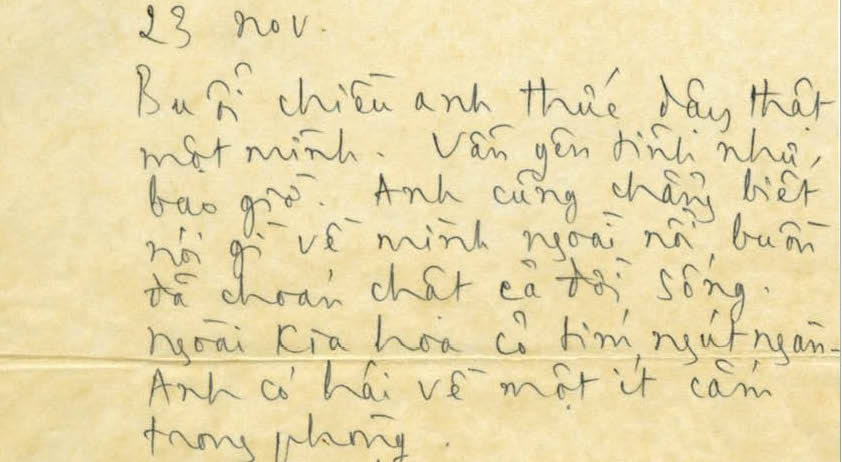 23 nov.
Buổi chiều anh thức dậy thật
một mình. Vẫn yên tĩnh như
bao giờ. Anh cũng chẳng biết
nói gì về mình ngoài nỗi buồn
đã choán chật cả đời sống.
Ngoài kia hoa cỏ tím ngút ngàn.
Anh có hái về một ít cắm
trong phòng.